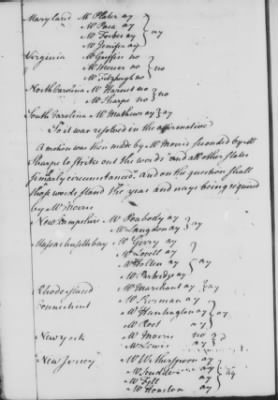 Maryland Mr Plater ay
Mr Paca ay
Mr Forbes ay } ay
Mr Jenifer ay
Virginia Mr Griffin no
Mr Mercer no } no
Mr Fitzhugh no
North Carolina Mr Harnet no } no
Mr Sharpe no
South Carolina Mr Mathews ay } ay
So it was resolved in the affirmative
A motion was then made by Mr Morris seconded by Mr
Sharpe to strike out the words and all other states
similarly circumstanced. And on the question shall
those words stand the yeas and nays being required
by Mr Morris
New Hampshire Mr Peabody ay } ay
Mr Langdon ay
Massachusettsbay Mr Gerry ay
Mr Lovell ay
Mr Holten ay } ay
Mr Partridge ay
Rhodeisland Mr Marchant ay } ay
Connecticut Mr Sherman ay
Mr Huntington ay } ay
Mr Root ay
New york Mr Morris no
Mr Lewis ay
New Jersey Mr Witherspoon ay
Mr Scudder ay
Mr Fell ay } ay
Mr Houston ay